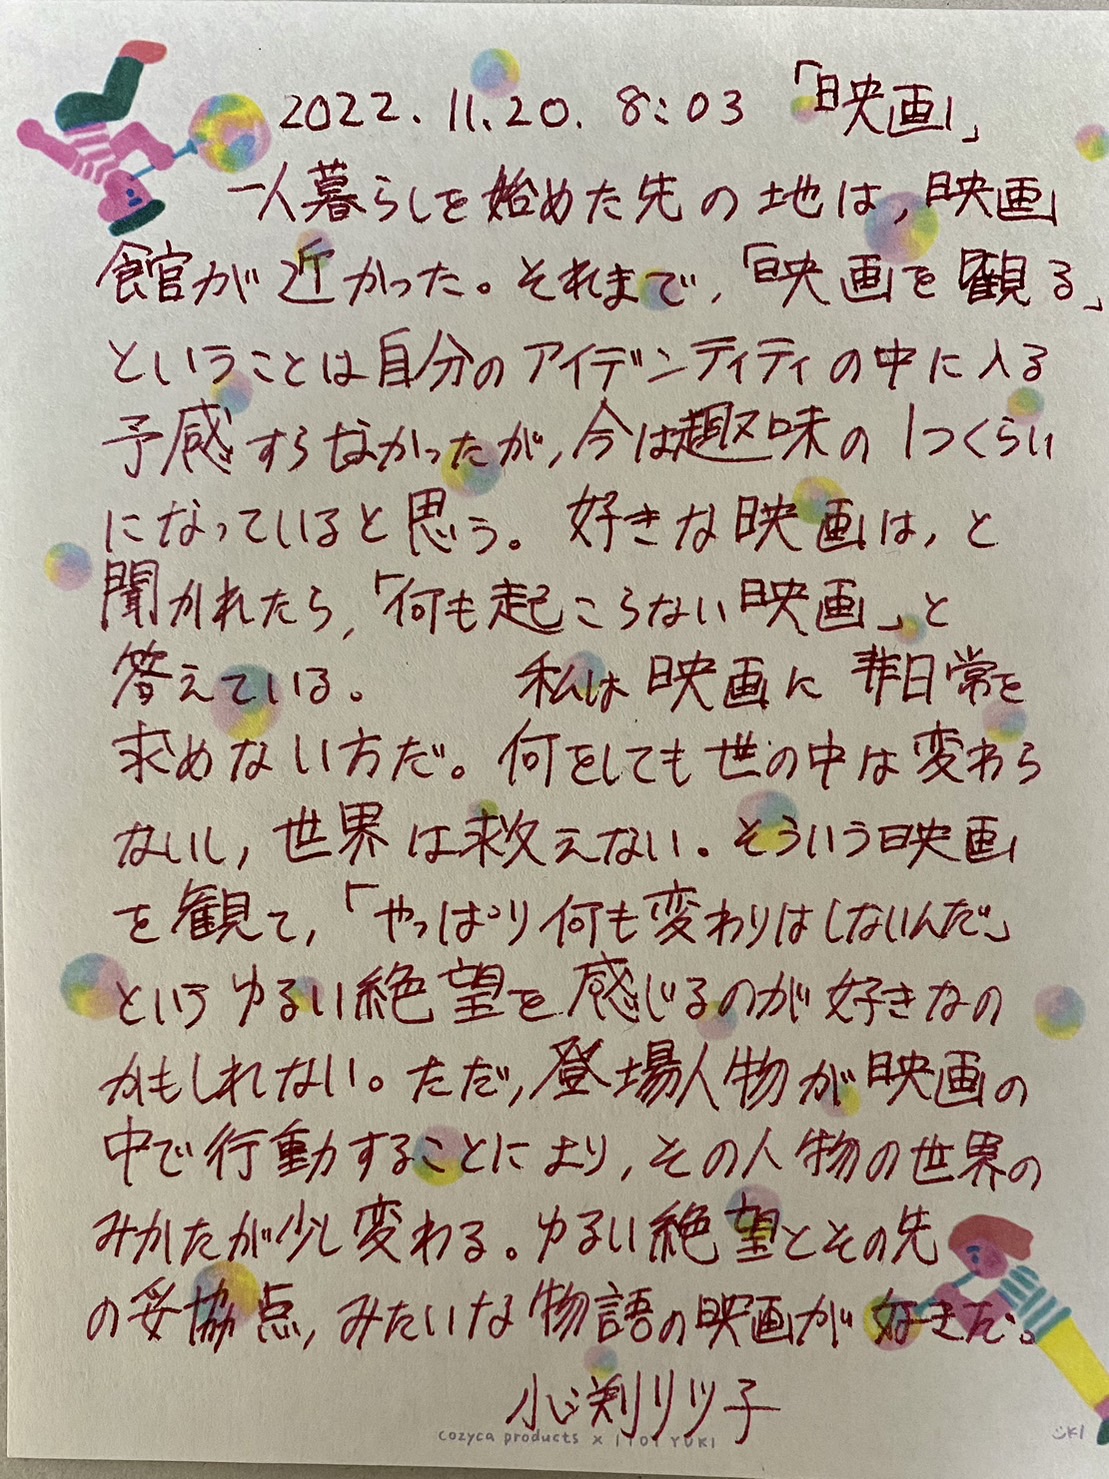 2022.11.20. 8:03 「映画」
一人暮らしを始めた先の地は,映画
館が近かった。それまで,「映画を観る」
ということは自分のアイデンティティの中に入る
予感すらなかったが,今は趣味の1つくらい
になっていると思う。好きな映画は,と
聞かれたら,「何も起こらない映画」と
答えている。 私は映画に非日常を
求めない方だ。何をしても世の中は変わら
ないし,世界は救えない。そういう映画
を観て,「やっぱり何も変わりはしないんだ」
というゆるい絶望を感じるのが好きなの
かもしれない。ただ,登場人物が映画の
中で行動することにより,その人物の世界の
みかたが少し変わる。ゆるい絶望とその先
の妥協点,みたいな物語の映画が好きだ。
小渕リツ子
cozyca products x ITOI YUKI